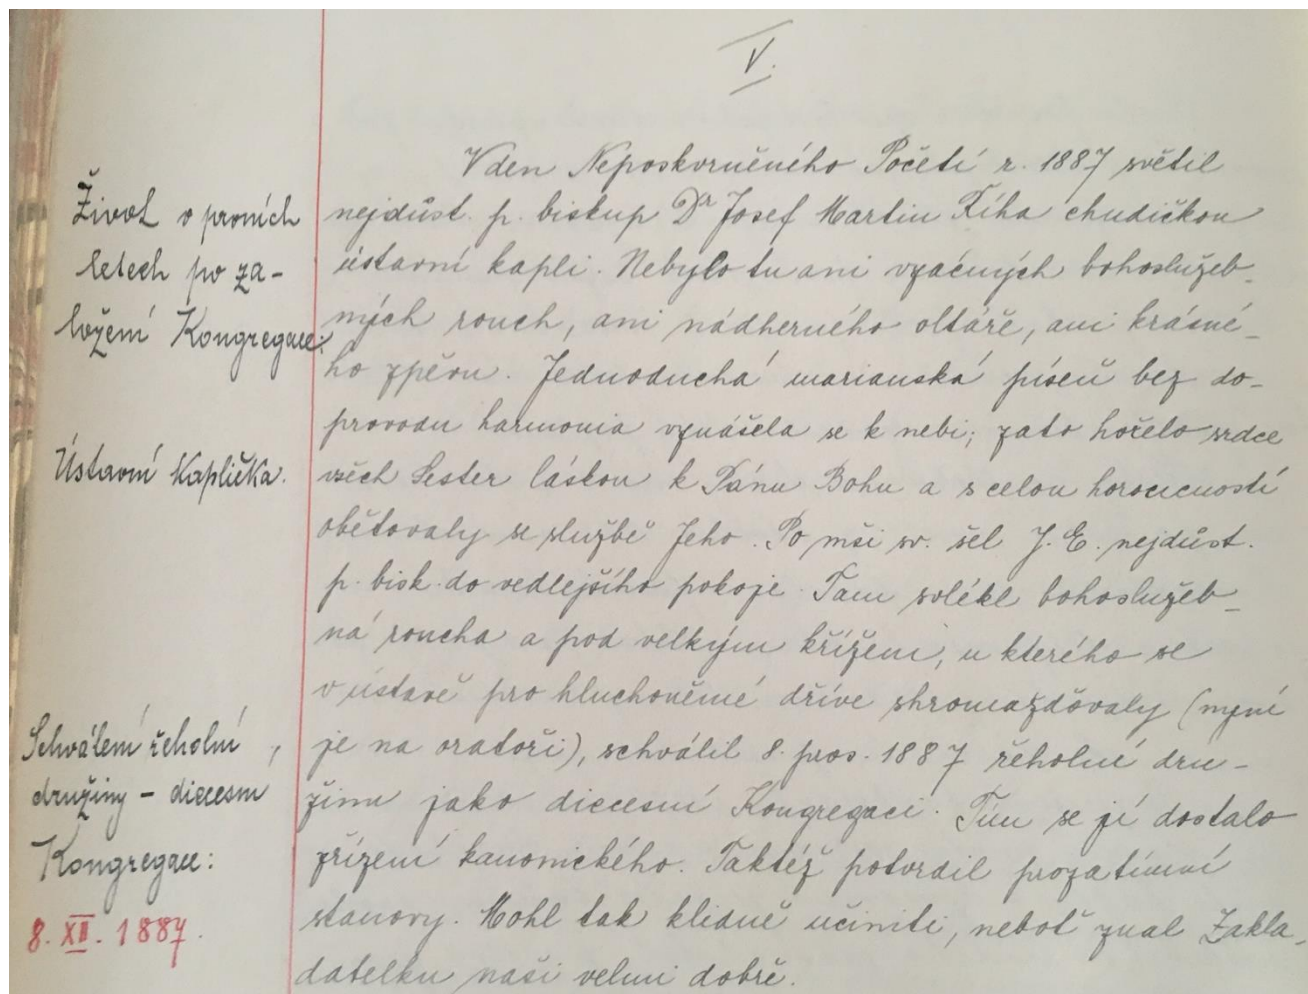 V.
Život v prvních
letech po za-
ložení Kongregace:
Ústavní kaplička.
Schválení řeholní
družiny - diecesní
Kongregace:
8. XII. 1887.
V den Neposkvrněného Početí r. 1887 světil
nejdůst. p. biskup Dr Josef Martin Říha chudičkou
ústavní kapli. Nebylo tu ani vzácných bohoslužeb-
ných rouch, ani nádherného oltáře, ani krásné-
ho zpěvu. Jednoduchá marianská píseň bez do-
provodu harmonia vznášela se k nebi; zato hořelo srdce
všech Sester láskou k Pánu Bohu a s celou horoucností
obětovaly se službě Jeho. Po mši sv. šel J. E. nejdůst.
p. bisk. do vedlejšího pokoje. Tam svlékl bohoslužeb-
ná roucha a pod velkým křížem, u kterého se
v ústavě pro hluchoněmé dříve shromažďovaly (nyní
je na oratoři), schválil 8. pros. 1887 řeholné dru-
žinu jako diecesní Kongregaci. Tím se jí dostalo
zřízení kanonického. Taktéž potvrdil prozatímní
stanovy. Mohl tak klidně učiniti, neboť znal Zakla-
datelku naši velmi dobře.